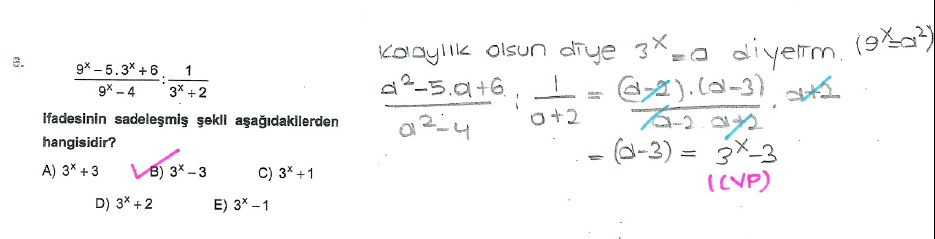 6.
9ˣ – 5.3ˣ + 6 / 9ˣ – 4 : 1 / 3ˣ + 2
ifadesinin sadeleşmiş şekli aşağıdakilerden
hangisidir?
A) 3ˣ + 3 B) 3ˣ – 3 C) 3ˣ + 1
D) 3ˣ + 2 E) 3ˣ – 1
Kolaylık olsun diye 3ˣ = a diyelim. (9ˣ = a²)
a² – 5.a + 6 / a² – 4 : 1 / a + 2 = (a – 2).(a – 3) / a – 2 . a + 2 . a + 2
= (a – 3) = 3ˣ – 3
(CVP)